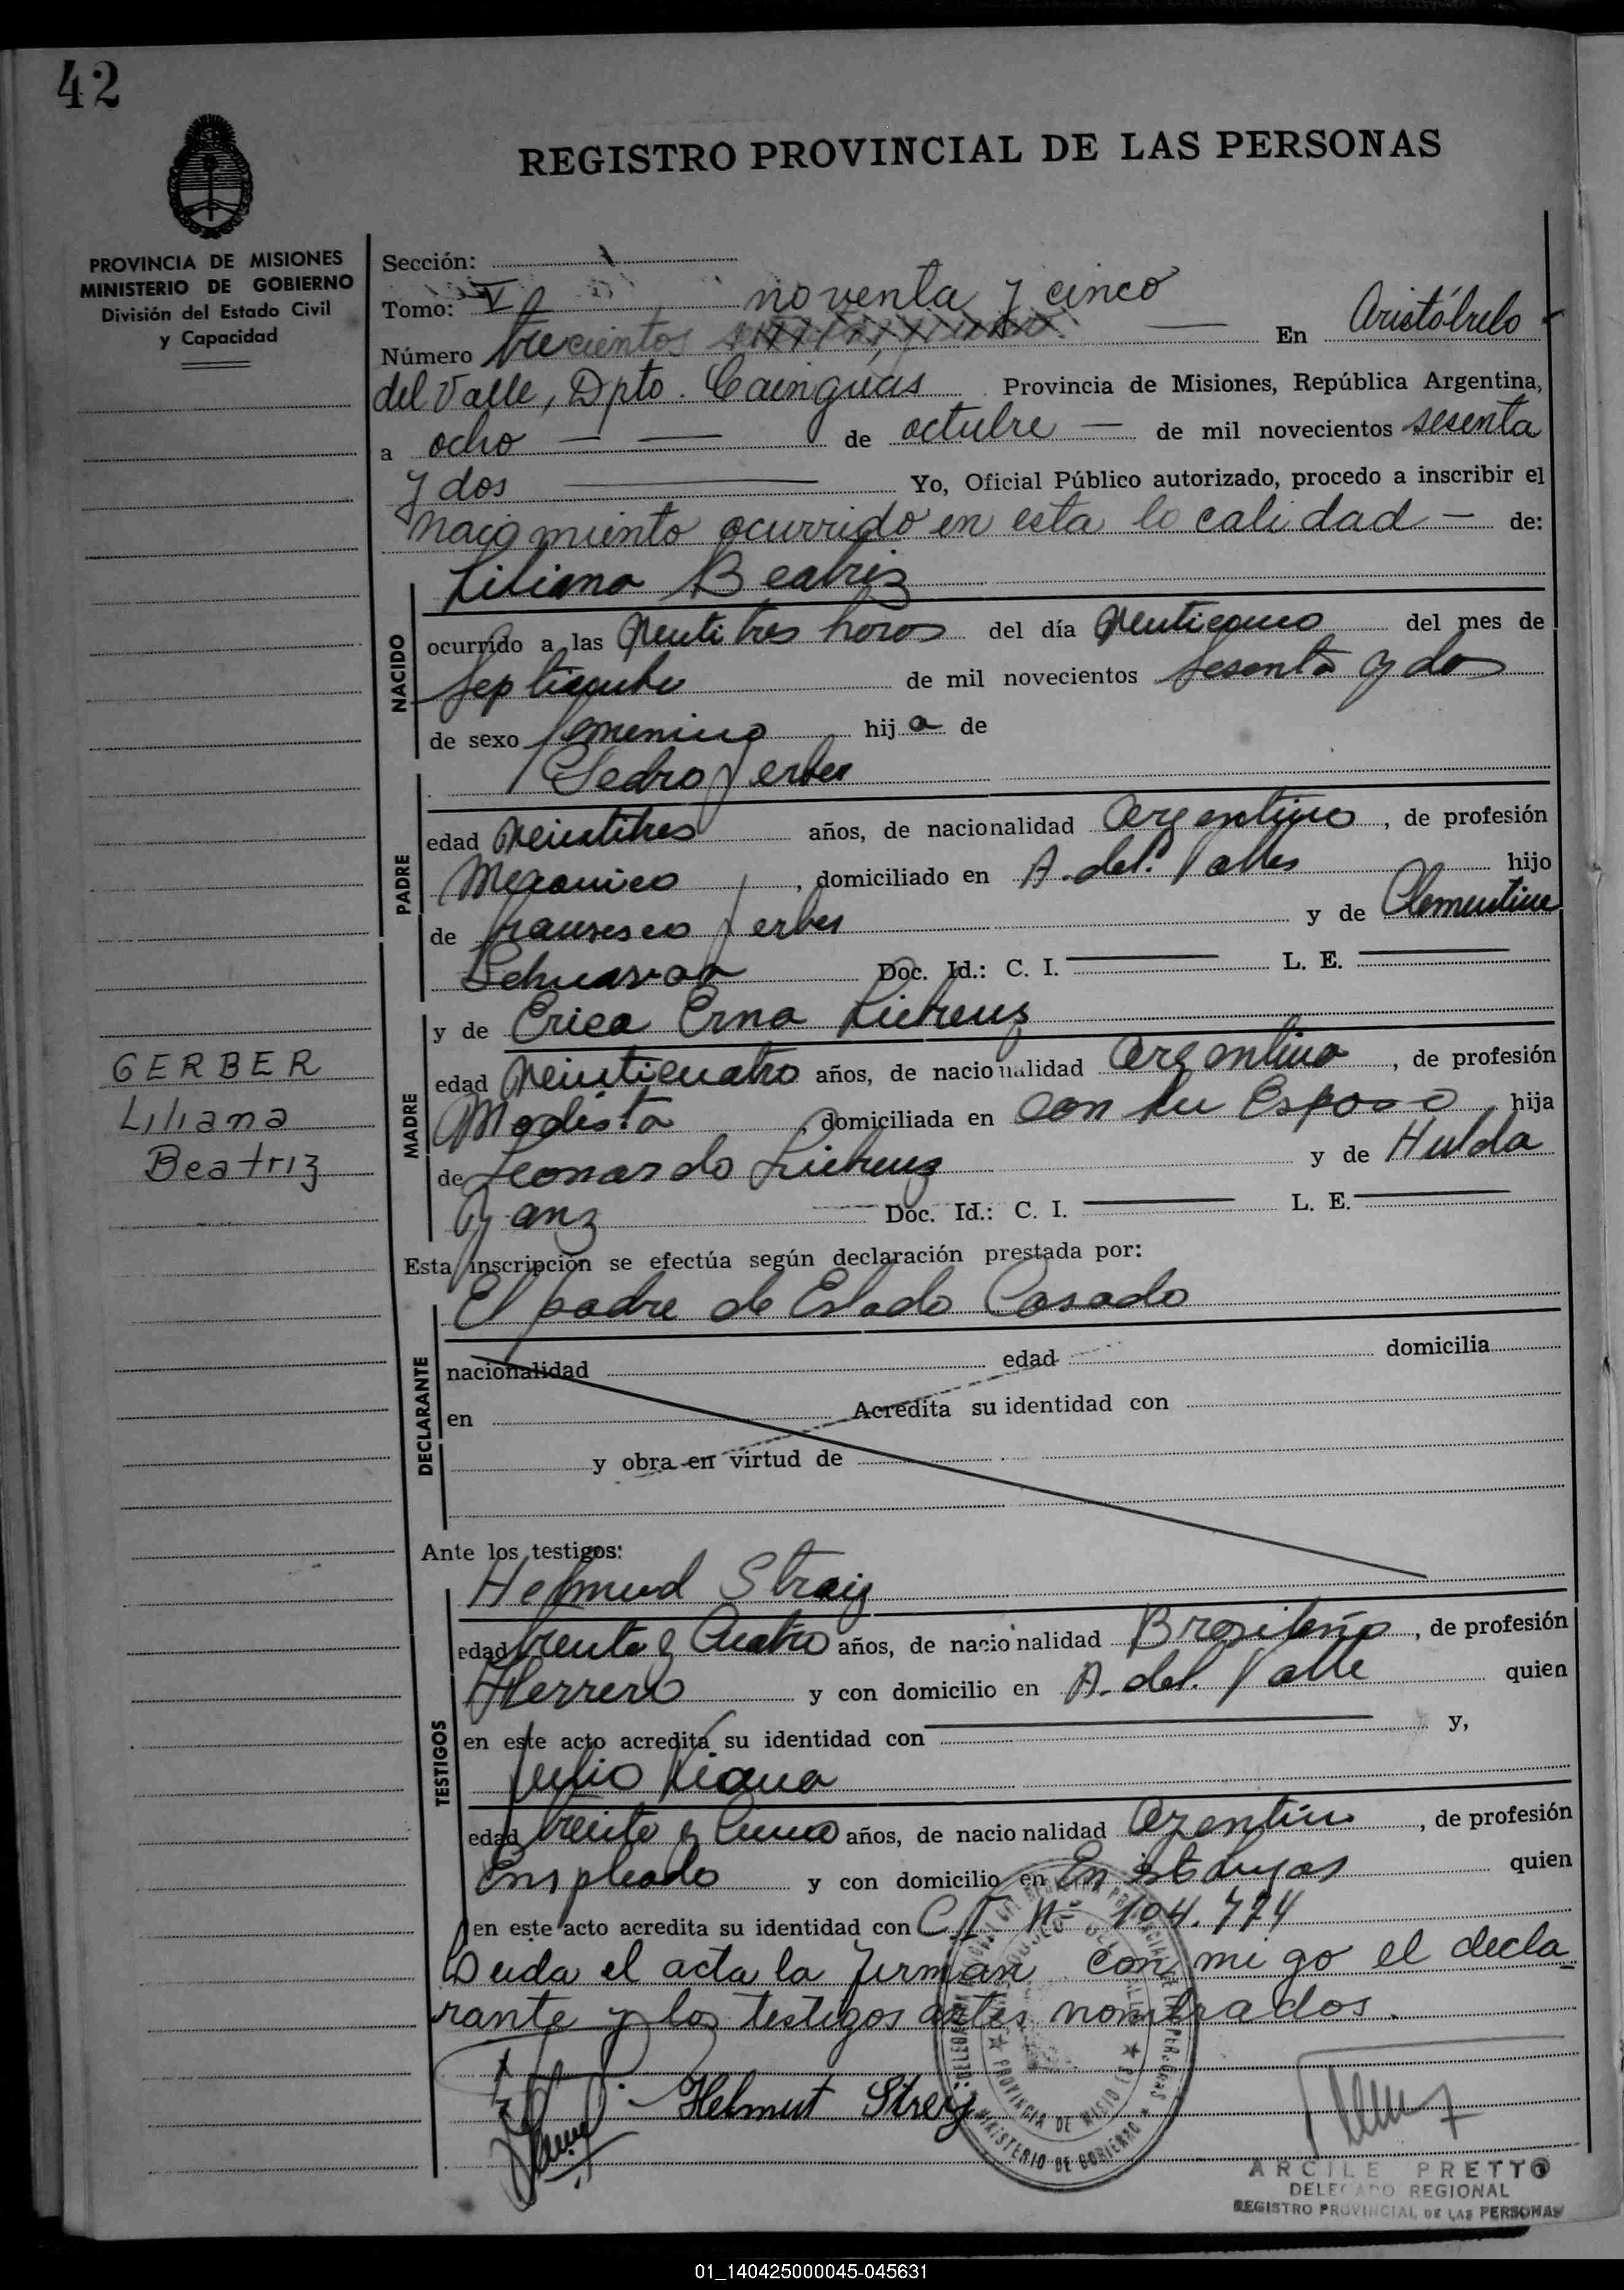 42
REGISTRO PROVINCIAL DE LAS PERSONAS
PROVINCIA DE MISIONES
MINISTERIO DE GOBIERNO
División del Estado Civil
y Capacidad
Sección:
Tomo: V noventa y cinco
Número trecientos En Aristóbulo
del Valle, Dpto. Cainguás Provincia de Misiones, República Argentina,
a ocho de octubre de mil novecientos sesenta
y dos Yo, Oficial Público autorizado, procedo a inscribir el
nacimiento ocurrido en esta localidad de:
NACIDO
Liliana Beatriz
ocurrido a las Veintitres horas del día Veinticinco del mes de
Septiembre de mil novecientos Sesenta y dos
de sexo femenino hija de
PADRE
Pedro Jerber
edad Veintitres años, de nacionalidad Argentino, de profesión
Mecanico, domiciliado en A. del Valle hijo
de Fransisco Jerber y de Clementine
Doc. Id.: C. I. L. E.
MADRE
y de Erica Erna
edad Veinticuatro años, de nacionalidad Argentina, de profesión
Modista, domiciliada en Con su Esposo hija
de Leonardo y de Hulda
Ganz Doc. Id.: C. I. L. E.
GERBER
Liliana
Beatriz
Esta inscripción se efectúa según declaración prestada por:
DECLARANTE
El padre de Estado Casado
nacionalidad edad domicilia
en Acredita su identidad con
y obra en virtud de
Ante los testigos:
TESTIGOS
Helmud Streig
edad treinta y Cuatro años, de nacionalidad Brasileño, de profesión
Herrero y con domicilio en A. del Valle quien
en este acto acredita su identidad con y,
Julio
edad treinta y años, de nacionalidad Argentino, de profesión
Empleado y con domicilio en quien
en este acto acredita su identidad con C I Nº 104.774
Leida el acta la firman conmigo el decla
rante y los testigos antes nombrados.
Helmut Streig
PROVINCIA DE MISIONES
MINISTERIO DE GOBIERNO
ARCILE PRETTO
DELEGADO REGIONAL
REGISTRO PROVINCIAL DE LAS PERSONAS
01_140425000045-045631